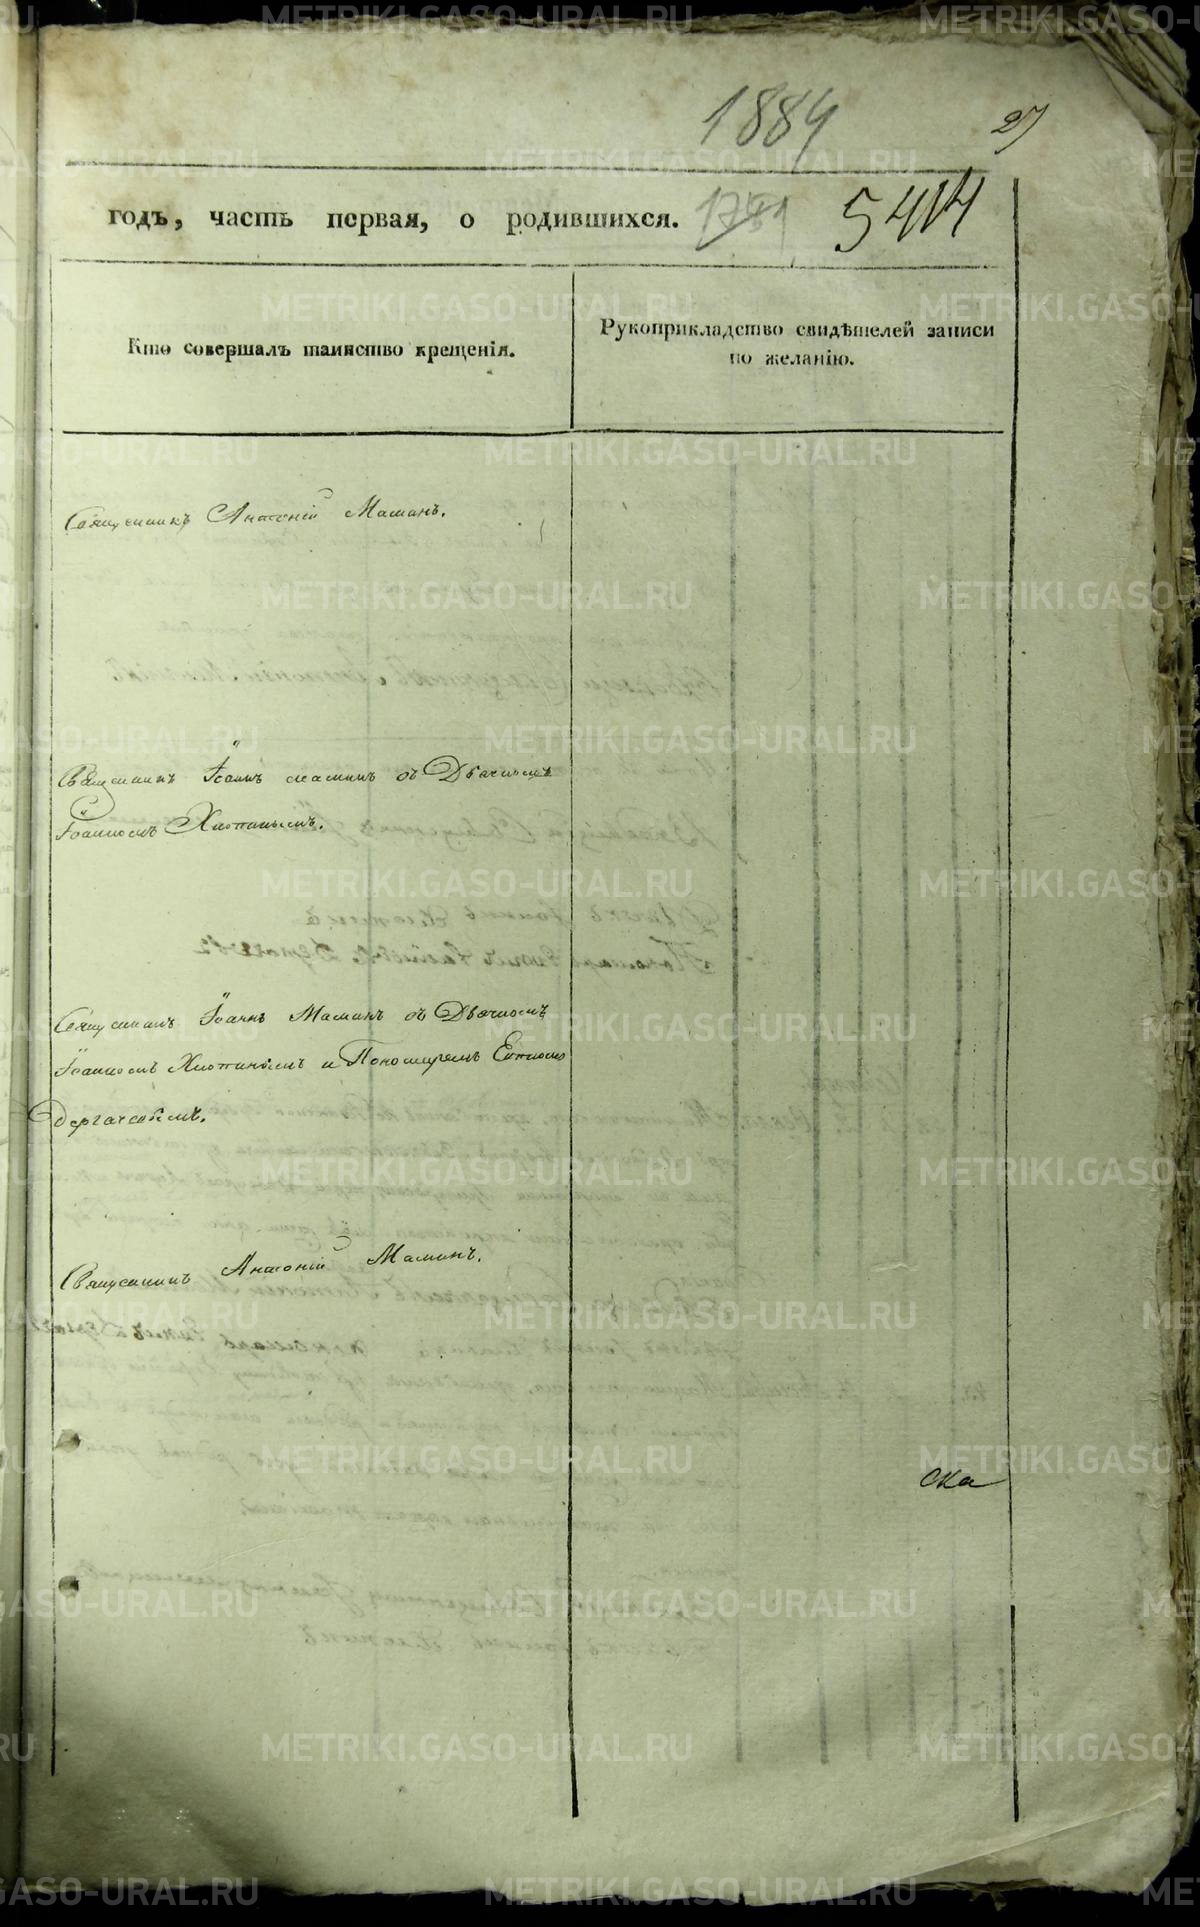 1884
27
годъ, часть первая, о родившихся. 1781 5414
Кто совершалъ таинство крещенія.
Рукоприкладство свидѣтелей записи
по желанію.
Священникъ Анатоній Маминъ.
Священникъ Іоаннъ Маминъ съ Дьячкомъ
Іоанномъ Хлопинымъ.
Священникъ Іоаннъ Маминъ съ Дьячкомъ
Іоанномъ Хлопинымъ и Пономаремъ
Дергачевымъ.
Священникъ Анатоній Маминъ.
ска
METRIKI.GASO-URAL.RU